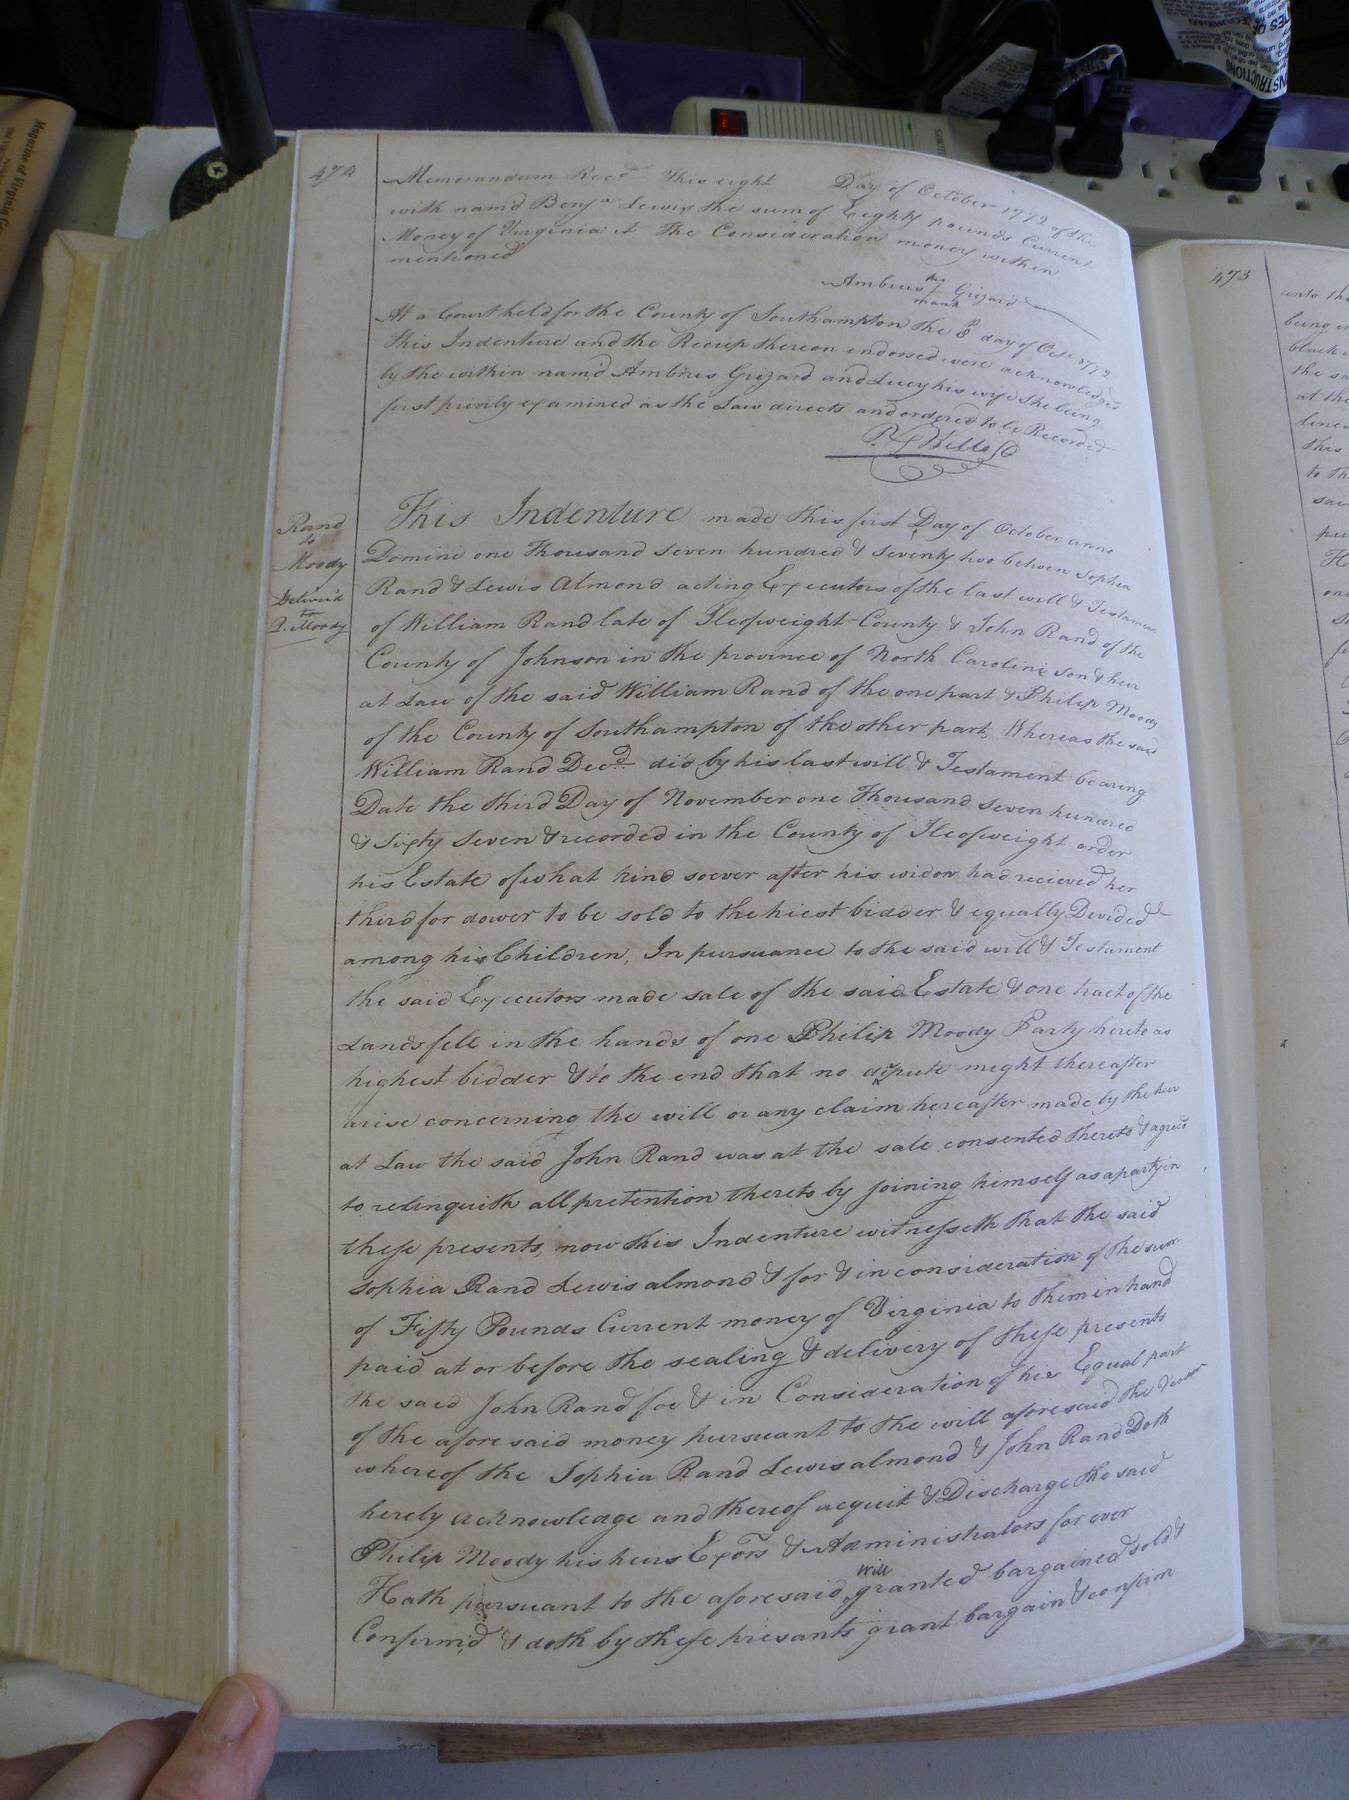 474
Memorandum Recd. this eight Day of October 1772 of the
with namd Benja. Lewis the sum of Eighty pounds Current
Money of Virginia it the Consideration money within
mentioned
Ambrus his Grizard
mark
At a Court held for the County of Southampton the 8 day of Octr. 1772
This Indenture and the Receip thereon endorsed were acknowledged
by the within namd Ambrus Grizard and Lucy his wife she being
first privily examined as the Law directs and ordered to be Recorded
Rand
to
Moody
Deliver'd
to
P. Moody
This Indenture made this first Day of October anno
Domini one Thousand seven hundred & seventy two between Sophia
Rand & Lewis Almond acting Executors of the last will & Testament
of William Rand late of Ileofweight County & John Rand of the
County of Johnson in the province of North Carolina son & heir
at Law of the said William Rand of the one part & Philip Moody
of the County of Southampton of the other part, Whereas the said
William Rand Decd. did by his last will & Testament bearing
Date the third Day of November one Thousand seven hundred
& sixty seven & recorded in the County of Ileofweight order
his Estate of what kind soever after his widow had recieved her
third for dower to be sold to the hiest bidder & equally Devided
among his Children, In pursuance to the said will & Testament
the said Executors made sale of the said Estate & one tract of the
Lands fell in the hands of one Philip Moody Party hereto as
highest bidder & to the end that no dispute meght thereafter
arise concerning the will or any claim hereafter made by the heir
at Law the said John Rand was at the sale consented thereto & agreed
to relinquith all pretention thereto by joining himself as a party in
these presents, now this Indenture witnesseth that the said
Sophia Rand Lewis almond & for & in consideration of the sum
of Fifty Pounds Current money of Virginia to them in hand
paid at or before the sealing & delivery of these presents
the said John Rand for & in Consideration of his Equal part
of the afore said money pursuant to the will aforesaid the
whereof the Sophia Rand Lewis almond & John Rand Doth
hereby acknowledge and thereof acquit & Discharge the said
Philip Moody his heirs Exors & Administrators for ever
Hath pursuant to the aforesaid will granted bargained sold &
Confirm'd & doth by these presants grant bargain & confirm
473